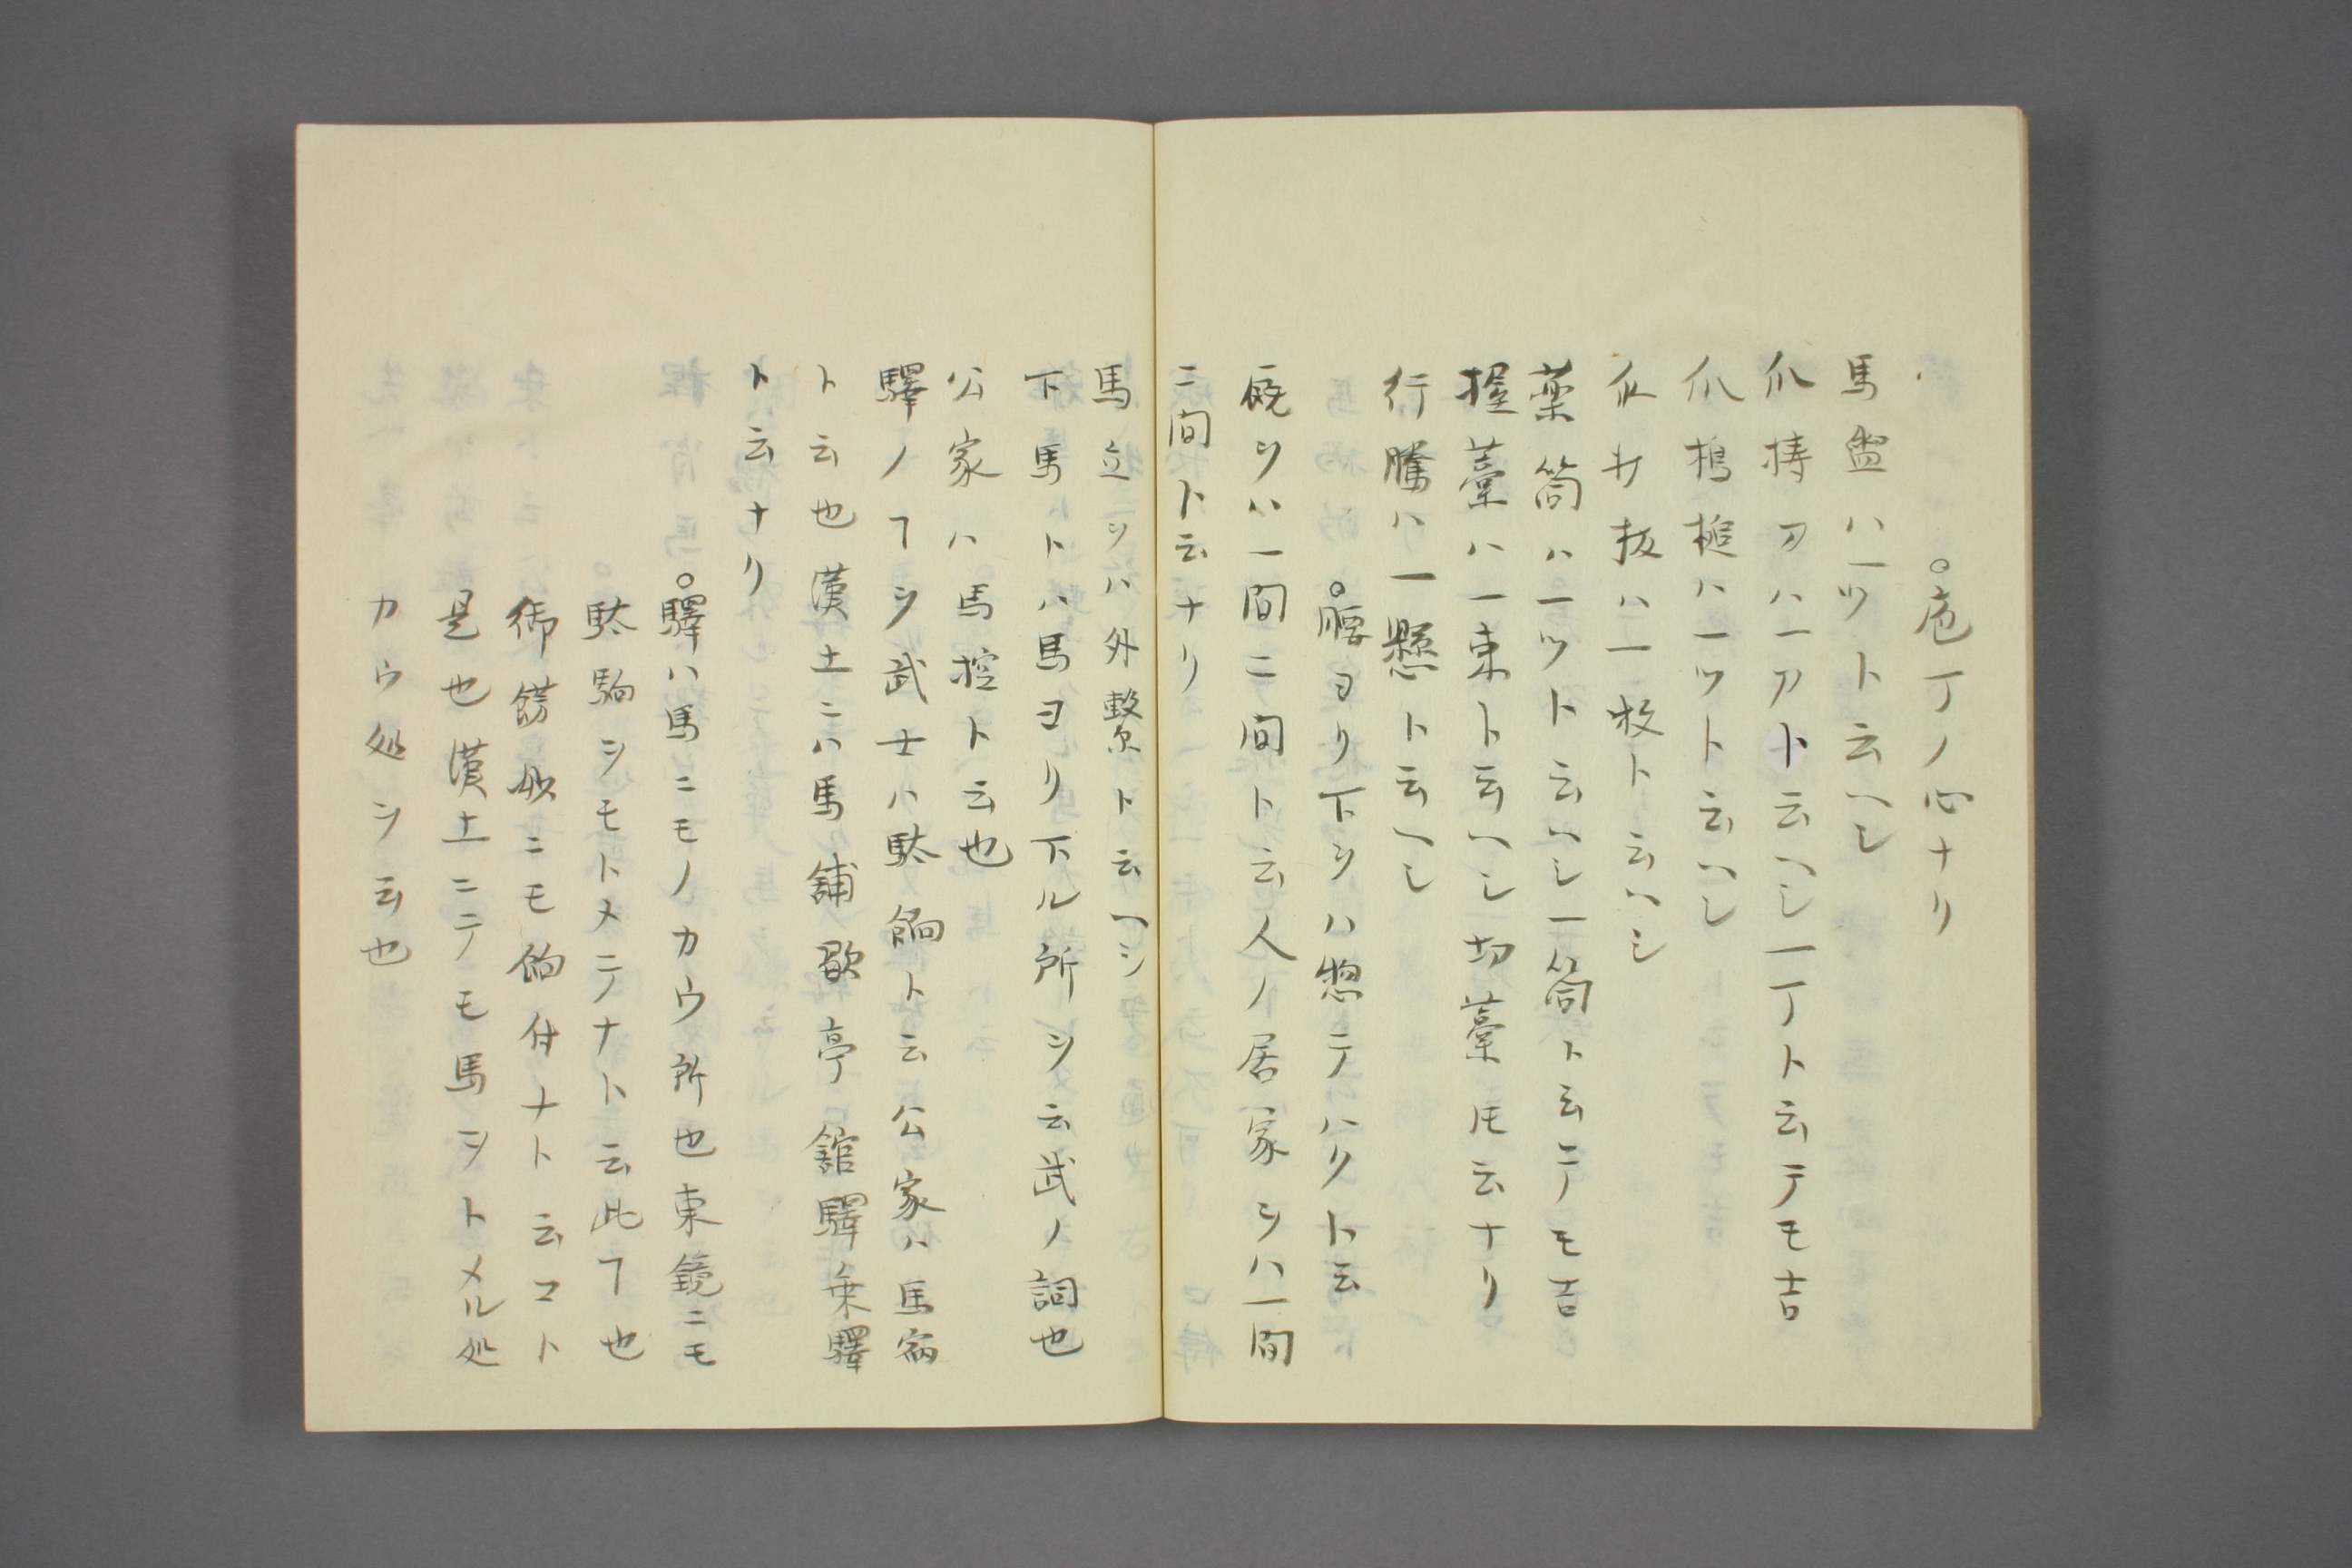 ○庖丁ノ心ナリ
馬盥ハ一ツト云ヘシ
爪擣刀ハ一刀ト云ヘシ一丁ト云テモ吉
爪槝槌ハ一ツト云ヘシ
爪サ抜ハ一枚ト云ヘシ
薬筒ハ一ツト云ヘシ一筒ト云テモ吉
握藁ハ一束ト云ヘシ切藁𪜈云ナリ
行騰ハ一懸ト云ヘシ
○腰ヨリ下ヲハ惣テハクト云
厩ヲハ一間二間ト云人ノ居家ヲハ一間
二間ト云ナリ
馬立ヲハ外繋ト云ヘシ
下馬トハ馬ヨリ下ル所ヲ云武ノ詞也
公家ハ馬控ト云也
驛ノヿヲ武士ハ駄餉ト云公家ハ馬宿
ト云也漢土ニハ馬舗歇亭舘驛乗驛
ト云ナリ
○驛ハ馬ニモノカウ所也東鏡ニモ
駄駒ヲモトメテナト云此ヿ也
御餝献ニモ餉付ナト云コト
是也漢土ニテモ馬ヲトメル処
カウ処ヲ云也